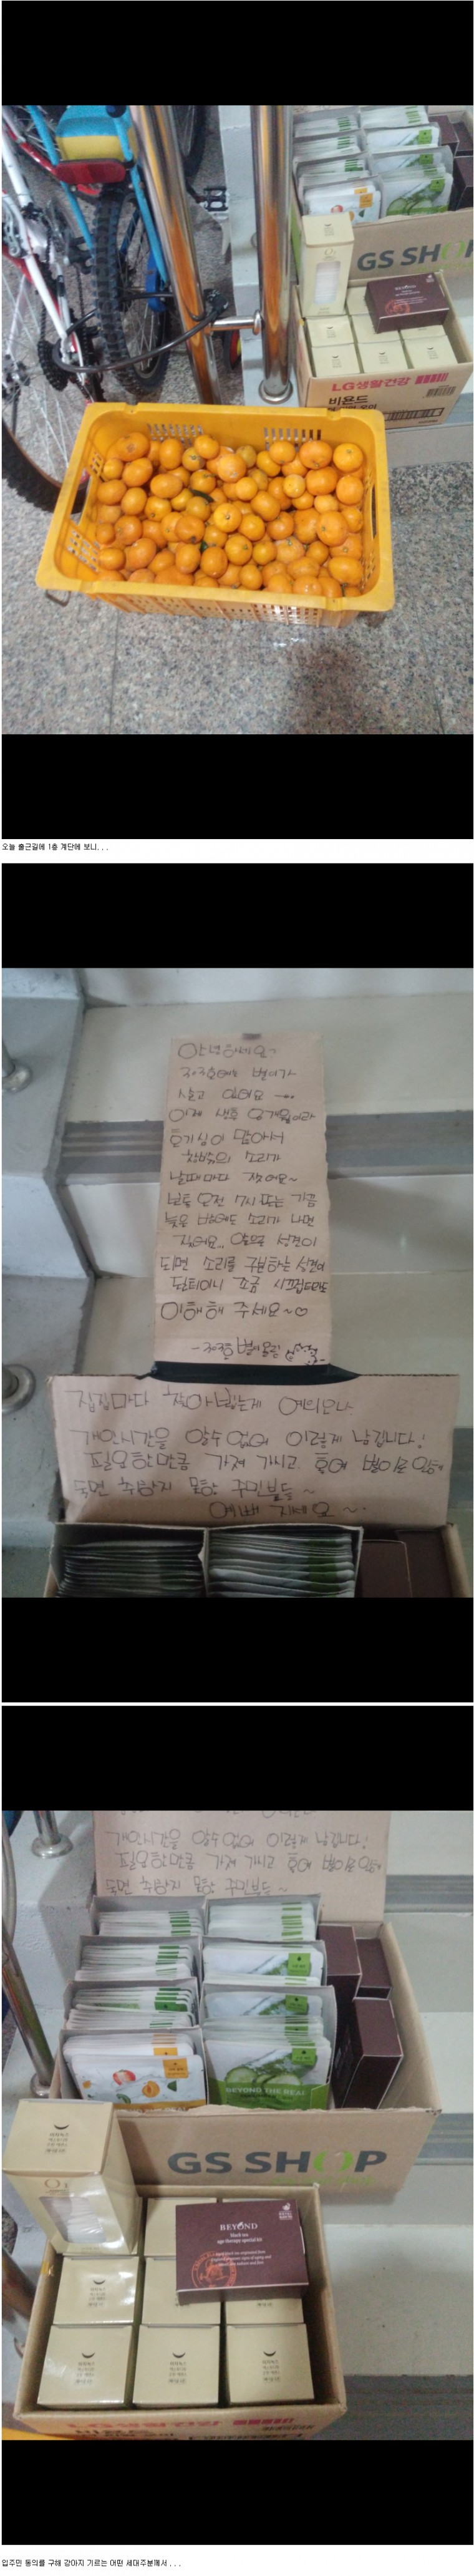 GS SHOP
LG생활건강
비욘드
BEYOND
오늘 출근길에 1층 계단에 보니. . .
안녕하세요?
살고 있어요
이제 생후
호기심이 많아서
창밖의 소리가
날때마다 짖어요~
보통 오전 7시 또는 가끔
늦은 밤에도 소리가 나면
짖어요... 성견이
되면 소리를 구분하는 성견이
될터이니 조금 시끄럽더라도
이해해 주세요~♡
집집마다 찾아뵙는게 예의오나
개인시간을 알수 없어 이렇게 남깁니다!
필요한만큼 가져 가시고 혹여 별이로 인해
숙면 취하지 못한 주민분들~
예뻐 지세요~
개인시간을 알수 없어 이렇게 남깁니다!
필요한만큼 가져 가시고 혹여 별이로 인해
숙면 취하지 못한 주민분들~
BEYOND THE REAL
GS SHOP
BEYOND
black tea
age therapy special kit
LG생활건강
입주민 동의를 구해 강아지 기르는 어떤 세대주분께서 . . .